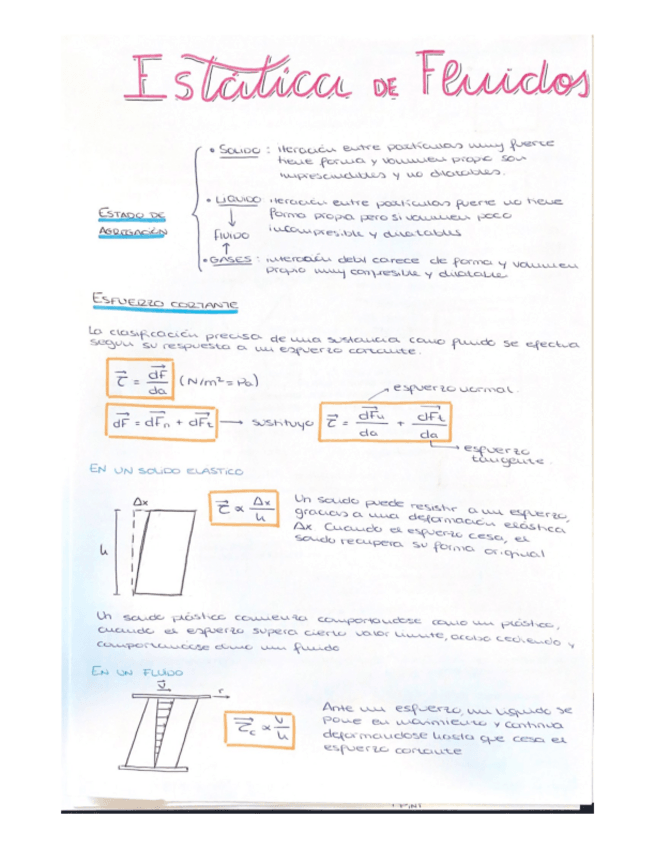 Estática DE Fluidos
• SOLIDO : iteración entre partículas muy fuerte
tiene forma y volumen propio son
imprescindibles y no dilatables.
ESTADO DE
AGREGACIÓN
• LIQUIDO iteración entre partículas fuerte no tiene
forma propia pero si volumen poco
incompresible y dilatables
↓
FLUIDO
↑
• GASES : interación debil carece de forma y volumen
propio muy compresible y dilatable
ESFUERZO CORTANTE
La clasificación precisa de una sustancia como fluido se efectua
segun su respuesta a un esfuerzo cortante.
τ = dF/da (N/m² = Pa)
esfuerzo normal.
dF = dFn + dFt → sustituyo τ = dFn/da + dFt/da
esfuerzo
tangente.
EN UN SOLIDO ELASTICO
Δx
h
τ ∝ Δx/h
Un solido puede resistir a un esfuerzo,
gracias a una deformación elástica
Δx. Cuando el esfuerzo cesa, el
solido recupera su forma original
Un solido plástico comienza comportandose como un plástico,
cuando el esfuerzo supera cierto valor limite, acaba cediendo y
comportandose como un fluido
EN UN FLUIDO
v
F
τc ∝ v/h
Ante un esfuerzo, un liquido se
pone en movimiento y continua
deformandose hasta que cesa el
esfuerzo cortante